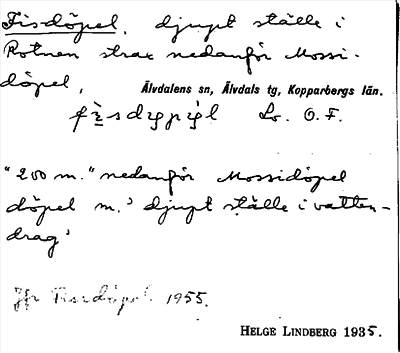 Fisdöpel, djupt ställe i
Rotnen strax nedanför Mossi-
döpel,
Älvdalens sn, Älvdals tg, Kopparbergs län.
Lr. O.F.
"200 m." nedanför Mossidöpel
döpel m. 'djupt ställe i vatten-
drag'
Jfr Fissdöpel 1955.
HELGE LINDBERG 1935.